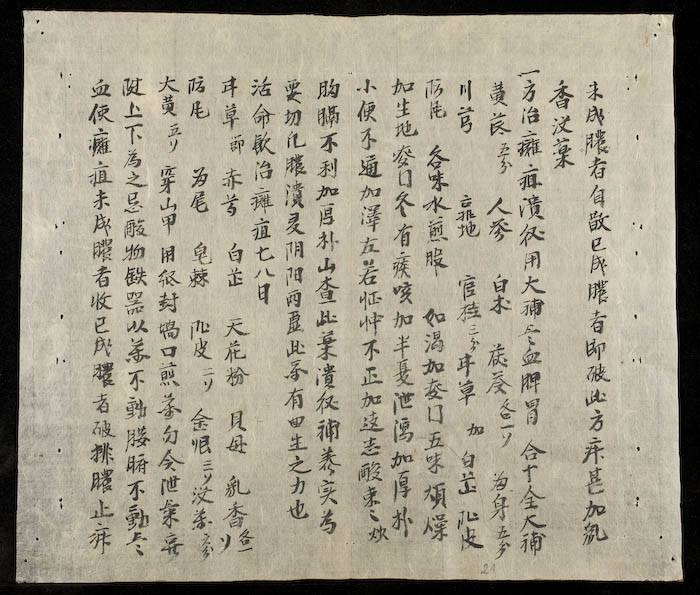 未成膿者自散已成膿者即破此方疼甚加乳
香没藥
一方治癰疽潰後用大補气血脾胃 合十全大補
黄芪五分 人参 白朮 茯苓各一刂 当身五分
川芎 熟地 官桂三分 甘草 加 白芷 陳皮
防風 各味水煎服 如渴加麥門五味煩燥
加生地麥門冬有痰咳加半夏泄瀉加厚朴
小便不通加澤左若怔忡不正加遠志酸棗
胸膈不利加厚朴山查此藥潰後補養実為
要切凡膿潰多阴阳两虚此藥有田生之力也
活命飲治癰疽七八日
甘草節 赤芍 白芷 天花粉 貝母 乳香各一刂
防風 当尾 皂棘 陳皮二刂 金银三刂 没藥六分
大黄五刂 穿山甲 用紙封墙口煎藥勿令泄藥
陡上下為之忌酸物鉄器以藥不動臓腑不動气
血使癰疽未成膿者收已成膿者破排膿止疼
21